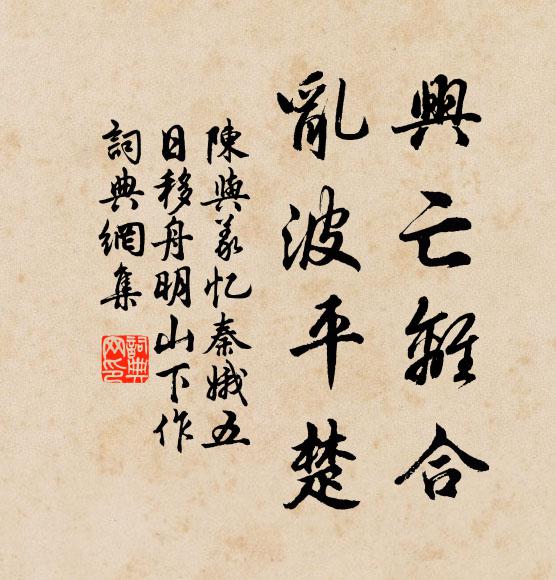 興亡離合
亂波平楚
陳與義忆秦娥五
日移舟明山下作
詞典網集
詞典
网印